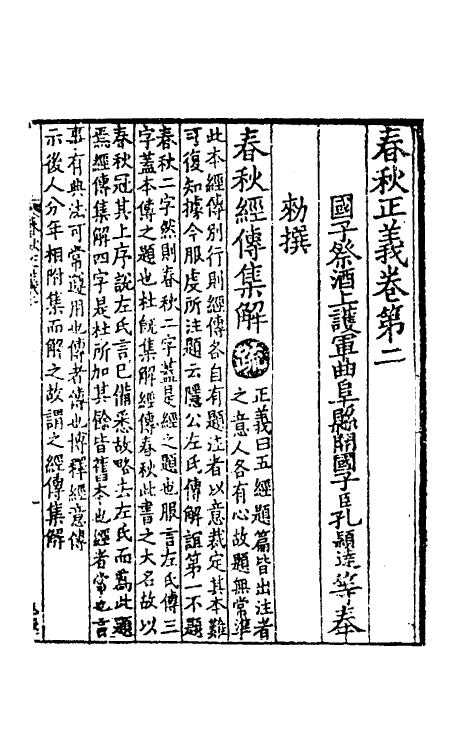 春秋正義卷第二
國子祭酒上護軍曲阜縣開國子臣孔穎達等奉
勑撰
春秋經傳集解 疏 正義曰五經題篇皆出注者
之意人各有心故題無常準
此本經傳別行則經傳各自有題注者以意裁定其本難
可復知據今服虔所注題云隱公左氏傳解誼第一不題
春秋二字然則春秋二字蓋是經之題也服言左氏傳三
字蓋本傳之題也杜旣集解經傳春秋此書之大名故以
春秋冠其上序說左氏言已備悉故略去左氏而爲此題
焉經傳集解四字是杜所加其餘皆舊本也經者常也言
事有典法可常遵用也傳者傳也博釋經意傳
示後人分年相附集而解之故謂之經傳集解